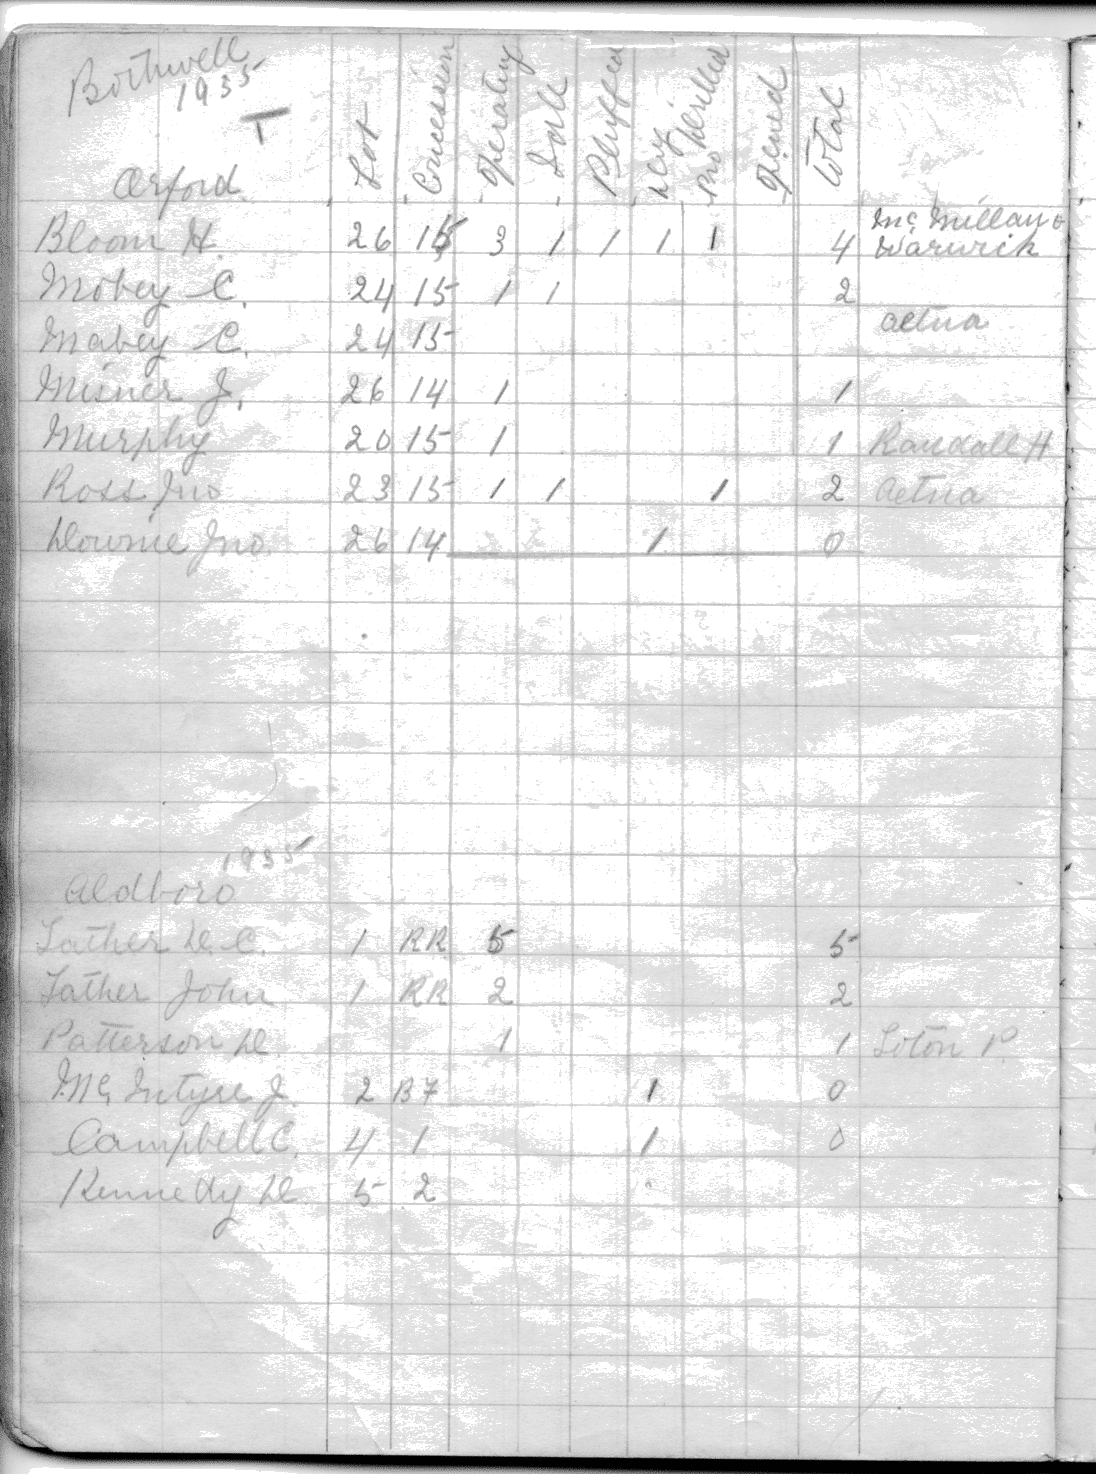 Bothwell
1935
T
Orford. Lot Concession Operating Idle Pluffed Dry No Drilled Opened Total
Mc Millan &
Bloom H. 26 15 3 1 1 1 1 4 Warwick
Mobey C. 24 15 1 1 2
Aetna
Mabey C. 24 15
Misner J. 26 14 1 1
Murphy 20 15 1 1 Randall H
Ross Jno 23 15 1 1 1 2 Aetna
Downie Jno. 26 14 1 0
1935
Aldboro
Father D. C. 1 RR 5 5
Father John 1 RR 2 2
Patterson D. 1 1 Loton P.
Mc Intyre J. 2 B7 1 0
Campbell C. 4 1 1 0
Kennedy D 5 2